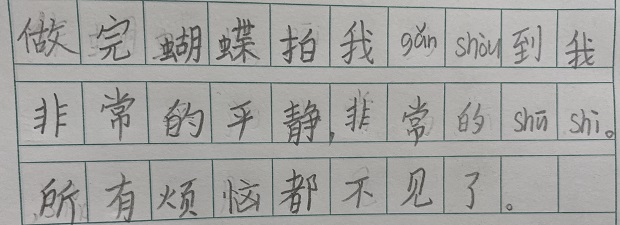 做完蝴蝶拍我gǎn shòu到我
非常的平静,非常的shū shì。
所有烦恼都不见了。